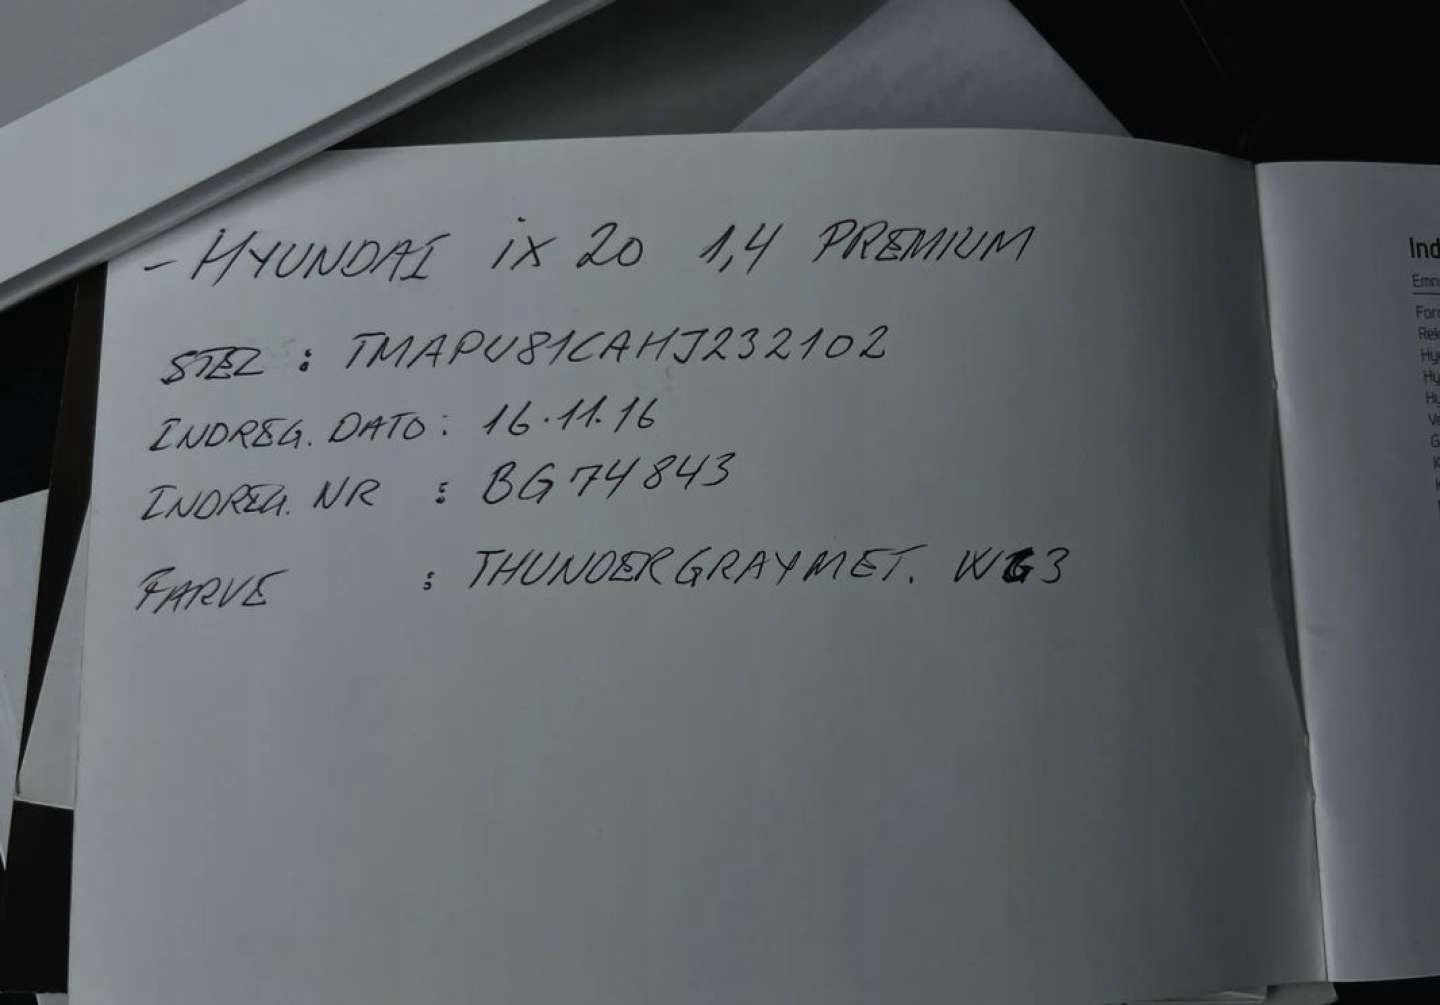 - HYUNDAI ix 20 1,4 PREMIUM
STEL : TMAPU81CAHJ232102
INDREG. DATO : 16.11.16
INDREG. NR : BG74843
FARVE : THUNDERGRAYMET. WG3
Ind
Emn